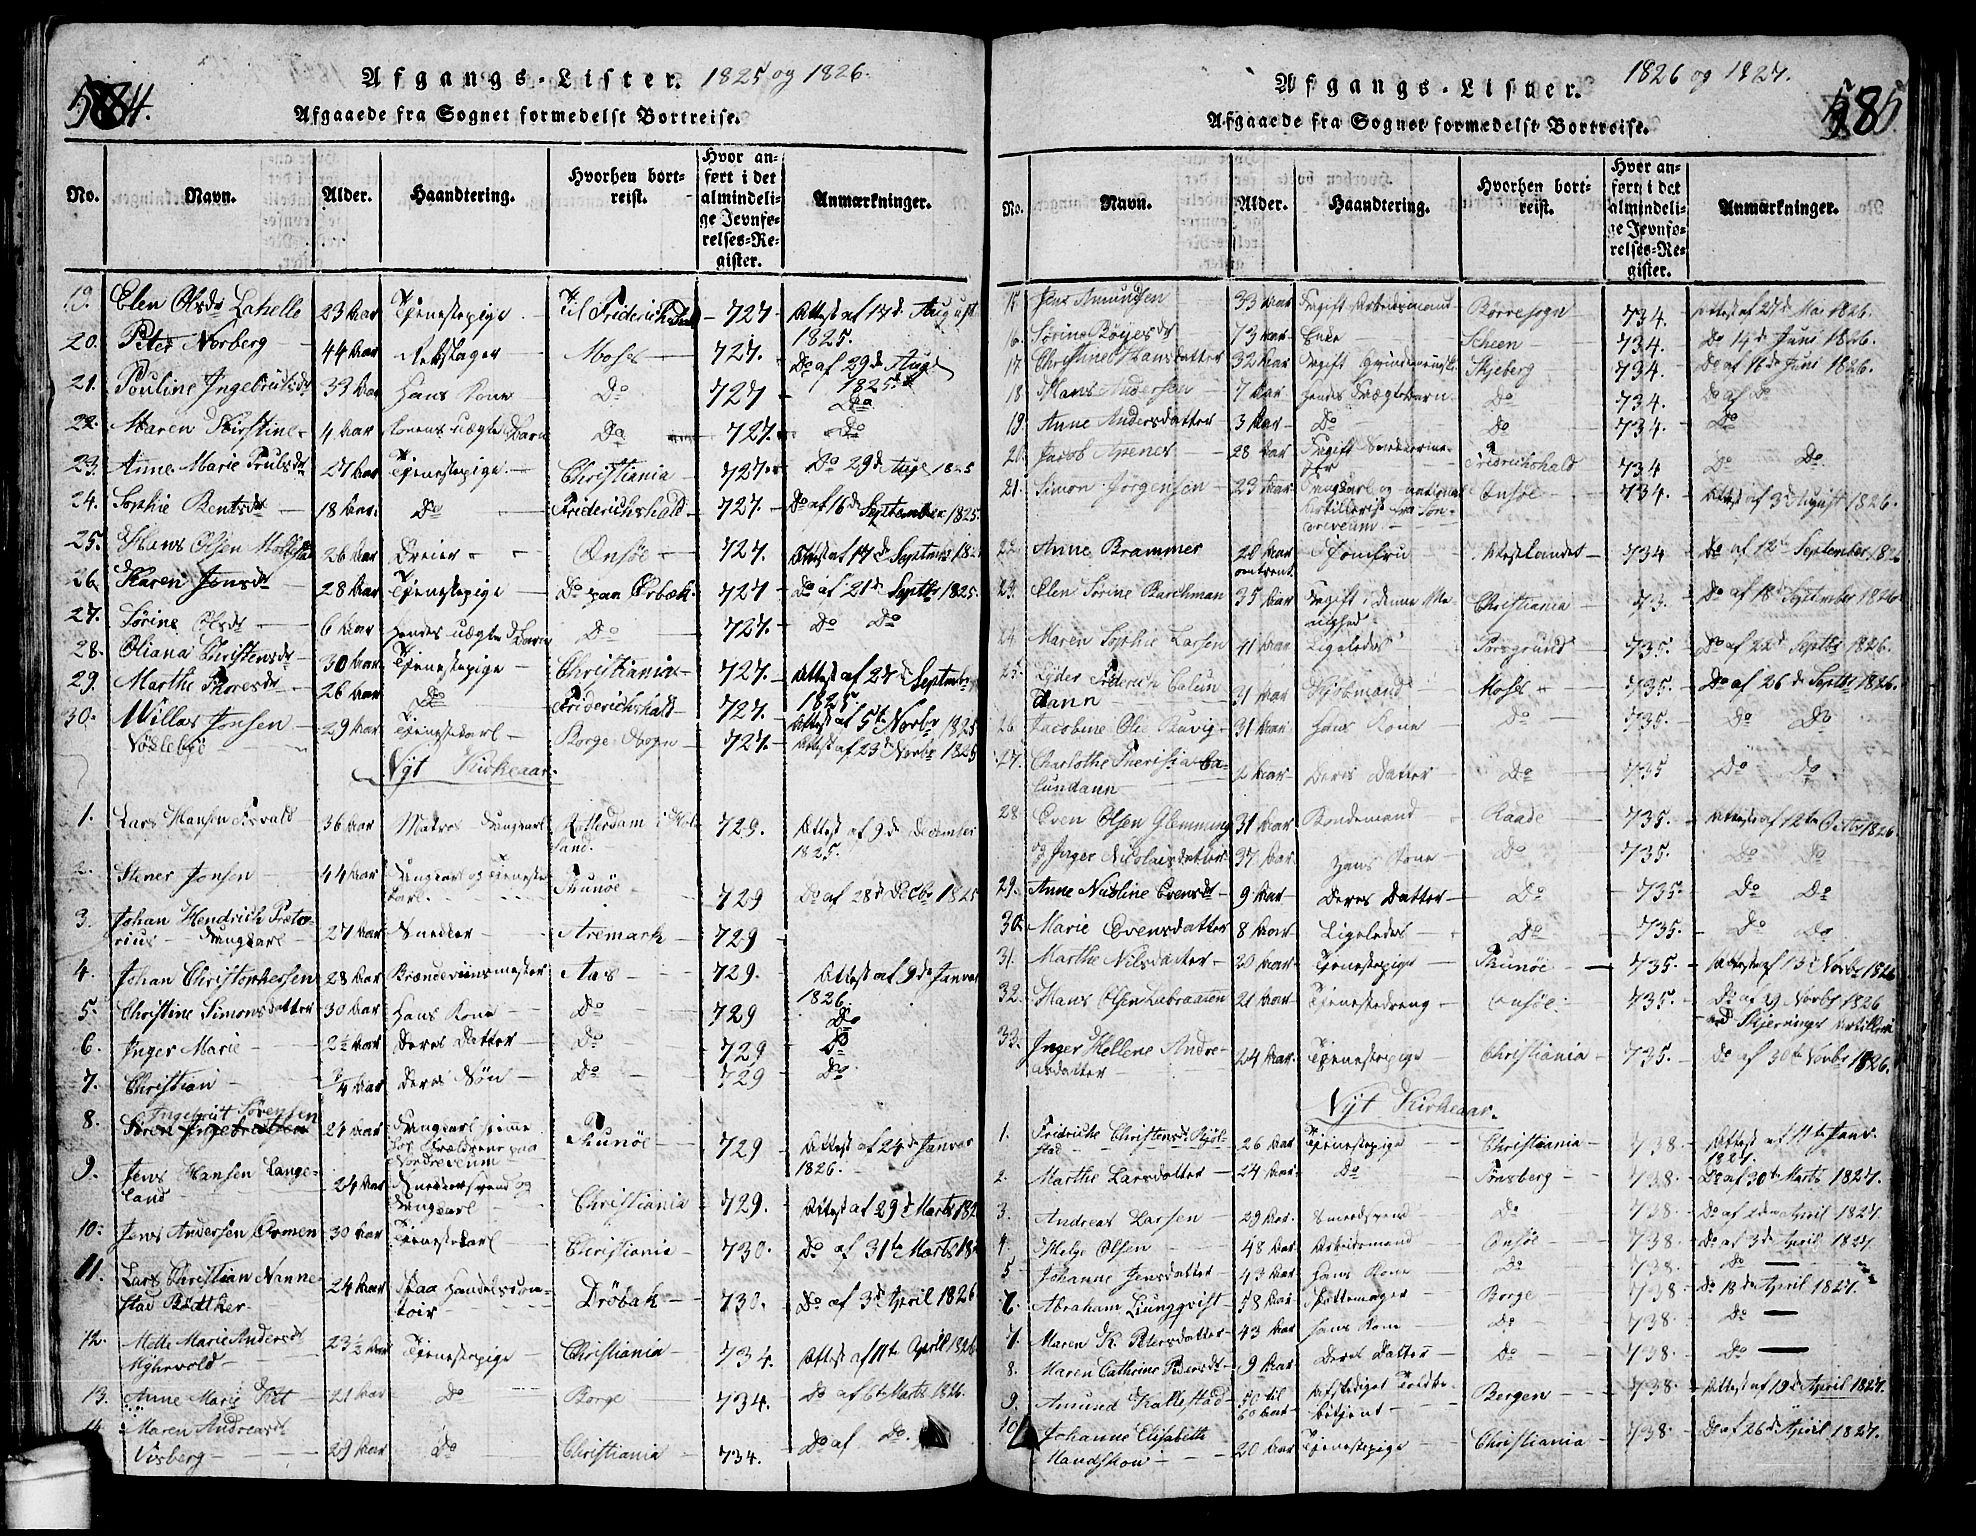 584.
Afgangs-Lister. 1825 og 1826.
Afgaaede fra Sognet formedelst Bortreise.
No. Navn. Alder. Haandtering. Hvorhen bortreist. Hvor anført i det almindelige Jevnførelses-Register. Anmærkninger.
19. Elen Olsdr Lahelle 23 Aar Tjenestepige Til Friderichstad 727 Attest af 17d August 1825.
20. Peter Norberg 44 Aar Rebslager Moss 727. Do af 29d Aug 1825
21. Pouline Ingebrutsdr 33 Aar Hans Kone Do 727 Do
22. Maren Kirstine 4 Aar Konens uægte Barn Do 727. Do
23. Anne Marie Trulsdr 27 Aar Tjenestepige Christiania 727 Do 29d Aug 1825
24. Sophie Bentsdr 18 Aar Do Friderichshald 727. Do af 16d September 1825.
25. Hans Olsen 26 Aar Dreier Onsöe 727. Attest af 17d Septembr
26. Karen Jonsdr 28 Aar Tjenestepige Do paa Ørbæk 727 Do af 21d Septbr 1825.
27. Sörine Olsdr 6 Aar Hendes uægte Barn Do 727. Do Do
28. Oliana Christensdr 30 Aar Tjenestepige Christiania 727. Attest af 27d Septembr 1825.
29. Marthe Thoresdr 26 Aar Do Friderichshald 727. Attest af 5te Novbr 1825
30. Willas Jonsen Nödlebye 29 Aar Tjenestekarl Borge Sogn 727. Attest af 23d Novbr 1825
Nyt Kirkeaar.
1. Lars Hansen 36 Aar Matros Ungkarl Rotterdam i Holland. 729. Attest af 9d December 1825.
2. Stener Jonsen 44 Aar Ungkarl og Tjenestekarl. Thunöe 729 Do af 28d Decbr 1825
3. Johan Hendrich Prætorius Ungkarl 27 Aar Snedker Aremark 729
4. Johan Christophersen 28 Aar Brændeviinsmester Aas 729. Attest af 9de Januar 1826.
5. Christine Simonsdatter 30 Aar Hans Kone Do 729 Do
6. Inger Marie 3½ Aar Deres Datter Do 729 Do
7. Christian Aar Deres Sön Do 729 Do
8. Ingebrigt Sörensen 24 Aar Ungkarl hjemme hos Forældrene paa Nordreveum Thunöe 729 Attest af 24de Januar 1826.
9. Jens Hansen Langeland 24 Aar Snedkersvend og Ungkarl Christiania 729. Attest af 29d Marts
10. Jens Andersen Ormen 30 Aar Tjenestekarl Christiania 730. Do af 31te Marts
11. Lars Christian Nannestad Bödtker 24 Aar Paa Handelscontoir Dröbak 730. Do af 3d April 1826
12. Mette Marie Andersdr 23½ Aar Tjenestepige Christiania 734. Attest af 11te April 1826
13. Anne Marie 21 Aar Do Borge 734. Do af 6te Marts 1826.
14. Maren Andreasdr Visberg 29 Aar Do Christiania 734. Do af Do.
585
Afgangs-Lister. 1826 og 1827.
Afgaaede fra Sognet formedelst Bortreise.
No. Navn. Alder. Haandtering. Hvorhen bortreist. Hvor anført i det almindelige Jevnførelses-Register. Anmærkninger.
15. Jens Amundsen 33 Aar Ugift Arbeidsmand Borresogn 734. Attest af 27d Mai 1826.
16. Sörine Röyesdr 73 Aar Enke Scheen 734. Do 14d Juni 1826.
17. Christine Hansdatter 32 Aar Ugift Qvindemenske Skjeberg 734. Do af 16d Juni 1826.
18. Hans Andersen 7 Aar Hendes Uægtebarn Do 734. Do af Do
19. Anne Andersdatter 3 Aar Do Do 734. Do
20. Jacob Arenes 28 Aar Ugift Friderichshald 734 Do Do.
21. Simon Jörgensen 23 Aar Ungkarl og national Artillerist fra Sondreveum. Onsöe 734. Attest af 3d August 1826.
22. Anne Brammer 20 Aar omtrent Jomfru Vestlandet 734 Do af 12te September 1826
23. Elen Sörine Barchman 35 Aar Ugift i denne Menighed Christiania Do af 18d September 1826
24. Maren Sophie Larsen 41 Aar Ligeledes Porsgrund 735. Do af 22d Septbr 1826.
25. Lyder Friderich Calundann Aar Kjöbmand Moss 735. Do af 26d Septbr 1826.
26. Jacobine 31 Aar Hans Kone Do 735. Do Do
27. Charlothe Theresia Calundann Aar Deres Datter Do 735 Do Do
28. Even Olsen Glemming 31 Aar Bondemand Raade 735. Attest af 12te Octbr 1826
og Inger Nicolaisdatter 37 Aar Hans Kone Do 735. Do Do
29. Anne Nicoline Evensdr 9 Aar Deres Datter Do 735. Do Do
30. Marie Evensdatter 8 Aar Ligeledes Do 735. Do Do
31. Marthe Nilsdatter 30 Aar Tjenestepige Thunöe 735. Attest af 13d Novbr 1826
32. Hans Olsen Labraaten 21 Aar Tjenestedreng Onsöe 735. Do af 9 Novbr 1826
33. Inger Hellene Andreasdatter 24 Aar Tjenestepige Christiania 735. Do af 30te Novbr 1826.
Nyt Kirkeaar.
1. Fridriche Christensdr 26 Aar Tjenestepige Christiania 738. Attest af 11te Janr. 1827.
2. Marthe Larsdatter 24 Aar Do Tönsberg 738. Do af 30te Marts 1827.
3. Andreas Larsen 29 Aar Smedsvend Do 738. Do af April 1827.
4. Helge Olsen 48 Aar Arbeidsmand Onsöe 738. Do af 3d April 1827.
5. Johanne Jensdatter 43 Aar Hans Kone Do 738. Do
6. Abraham Liunggvist 58 Aar Pottemager Borge 738. Do 18de April 1827.
7. Maren K. Petersdatter 43 Aar Hans Kone Do 738. Do
8. Maren Cathrine Pedersdr 9 Aar Deres Datter Do 738. Do
9. Amund Kallestad 50 til 60 Aar Afskediget Toldbetjent Bergen 738. Attest af 19d April 1827.
10. Johanne Elisabeth Mandskow 20 Aar Tjenestepige Christiania 738. Do af 26d April 1827.